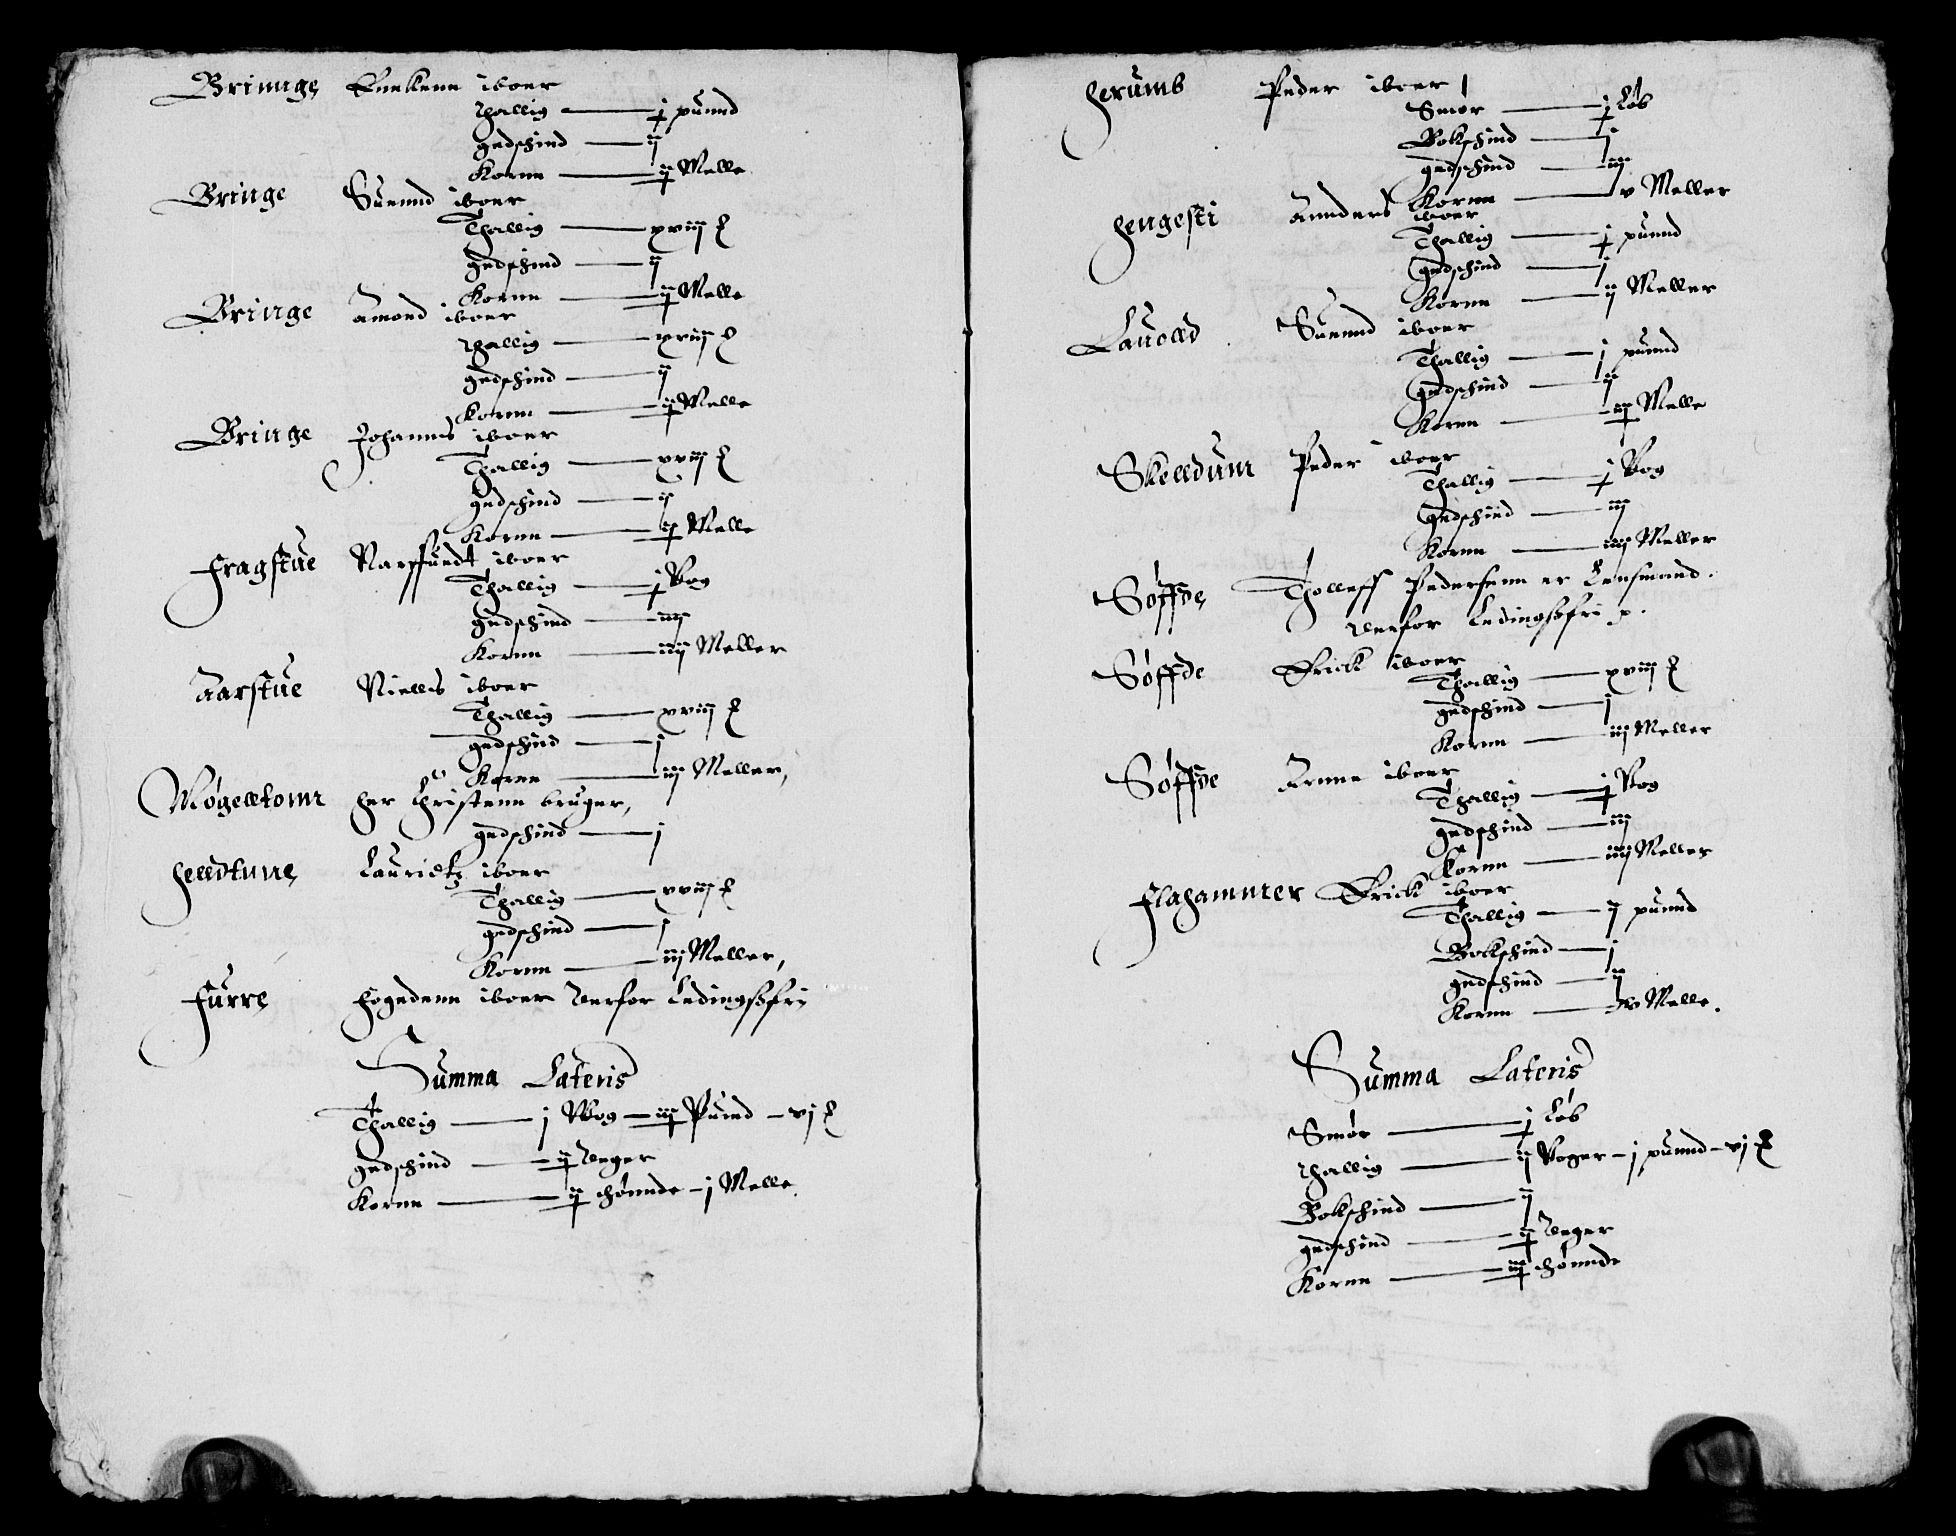 Brinnge Enckenn iboer
Thallig — j punnd
gedschind — ij
Kornn — ij Melle
Bringe Suennd iboer
Thallig — xviij ℔
gedschind — ij
Kornn — ij Melle
Bringe Amond iboer
Thallig — xviij ℔
gedschind — ij
Kornn — ij Melle
Bringe Johannes iboer
Thallig — xviij ℔
gedschind — ij
Kornn — ij Melle
Fragstue Narffuedt iboer
Thallig — j Vog
gedschind — iiij
Kornn — iiij Meller
Aarstue Niells iboer
Thallig — xviij ℔
gedschind — j
Kornn — iij Meller,
Møgelltomt her Christenn bruger,
gedschind — j
Helldtune Lauridtz iboer
Thallig — xviij ℔
gedschind — j
Kornn — iij Meller,
Furre fogedenn iboer Verfor Ledingsfrj
Summa Lateris
Thallig — j Wog — iij Pund — vj ℔
gedschind — ij Neger
Kornn — ij thønnde — j Melle.
Herumb Peder iboer
Smør — j Løb
Bockschind — j
gedschind — iij
Kornn — v Meller
Hengesti Annders iboer
Thallig — j punnd
gedschind — j
Kornn — ij Meller
Lauolld Suennd iboer
Thallig — j punnd
gedschind — ij
Kornn — iij Melle
Skelldum Peder iboer
Thallig — j Vog
gedschind — iij
Kornn — iiij Meller
Søffde Tholleff Pedersenn er Lensmand.
Verfor Ledingsfri p.
Søffde Erick iboer
Thallig — xviij ℔
gedschind — j
Kornn — iij Meller
Søffde Arnne iboer
Thallig — j Vog
gedschind — iij
Kornn — iiij Meller
Flahammer Erick iboer
Thallig — j punnd
Bockschind — j
gedschind — ij
Kornn — Melle.
Summa Lateris
Smør — j Løb
Thallig — ij Voger — j punnd — vj ℔
Bockschind — ij
gedschind — ij Neger
Kornn — iij thønnde